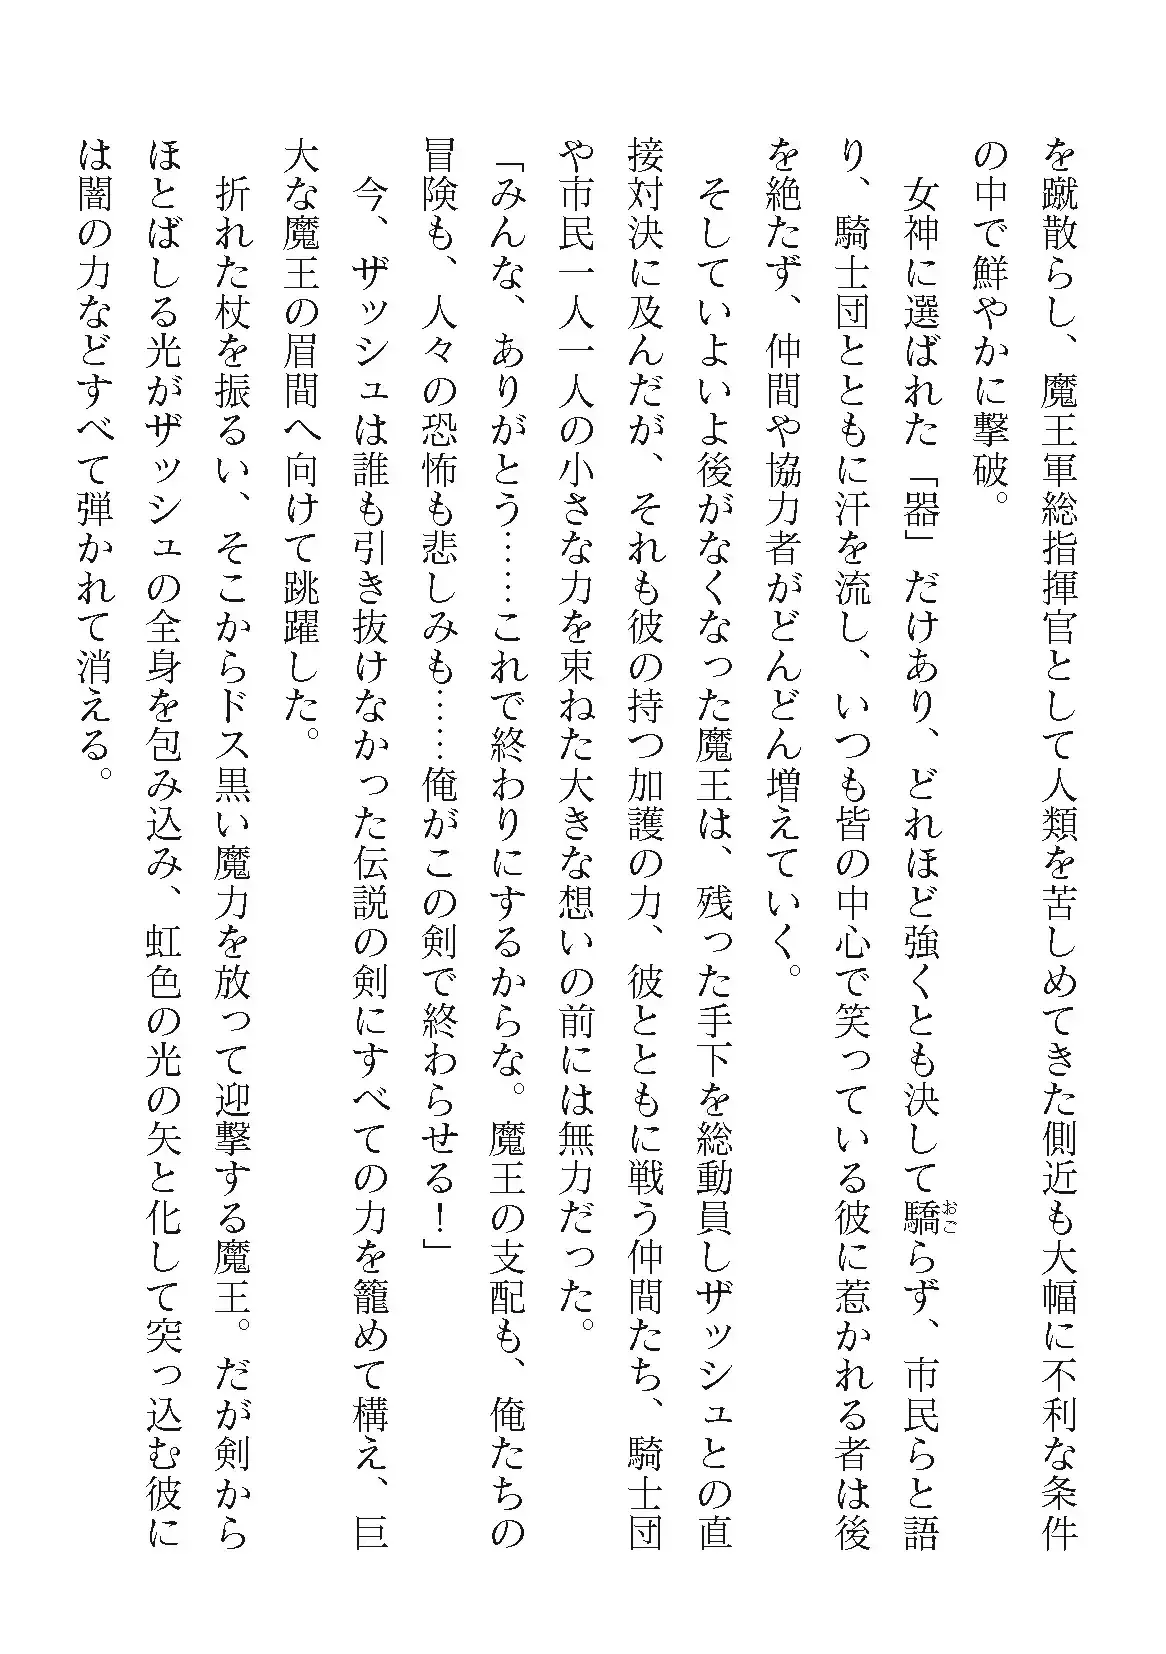 を蹴散らし、魔王軍総指揮官として人類を苦しめてきた側近も大幅に不利な条件
の中で鮮やかに撃破。
　女神に選ばれた「器」だけあり、どれほど強くとも決して驕らず、市民らと語
おご
り、騎士団とともに汗を流し、いつも皆の中心で笑っている彼に惹かれる者は後
を絶たず、仲間や協力者がどんどん増えていく。
　そしていよいよ後がなくなった魔王は、残った手下を総動員しザッシュとの直
接対決に及んだが、それも彼の持つ加護の力、彼とともに戦う仲間たち、騎士団
や市民一人一人の小さな力を束ねた大きな想いの前には無力だった。
「みんな、ありがとう……これで終わりにするからな。魔王の支配も、俺たちの
冒険も、人々の恐怖も悲しみも……俺がこの剣で終わらせる！」
　今、ザッシュは誰も引き抜けなかった伝説の剣にすべての力を籠めて構え、巨
大な魔王の眉間へ向けて跳躍した。
　折れた杖を振るい、そこからドス黒い魔力を放って迎撃する魔王。だが剣から
ほとばしる光がザッシュの全身を包み込み、虹色の光の矢と化して突っ込む彼に
は闇の力などすべて弾かれて消える。